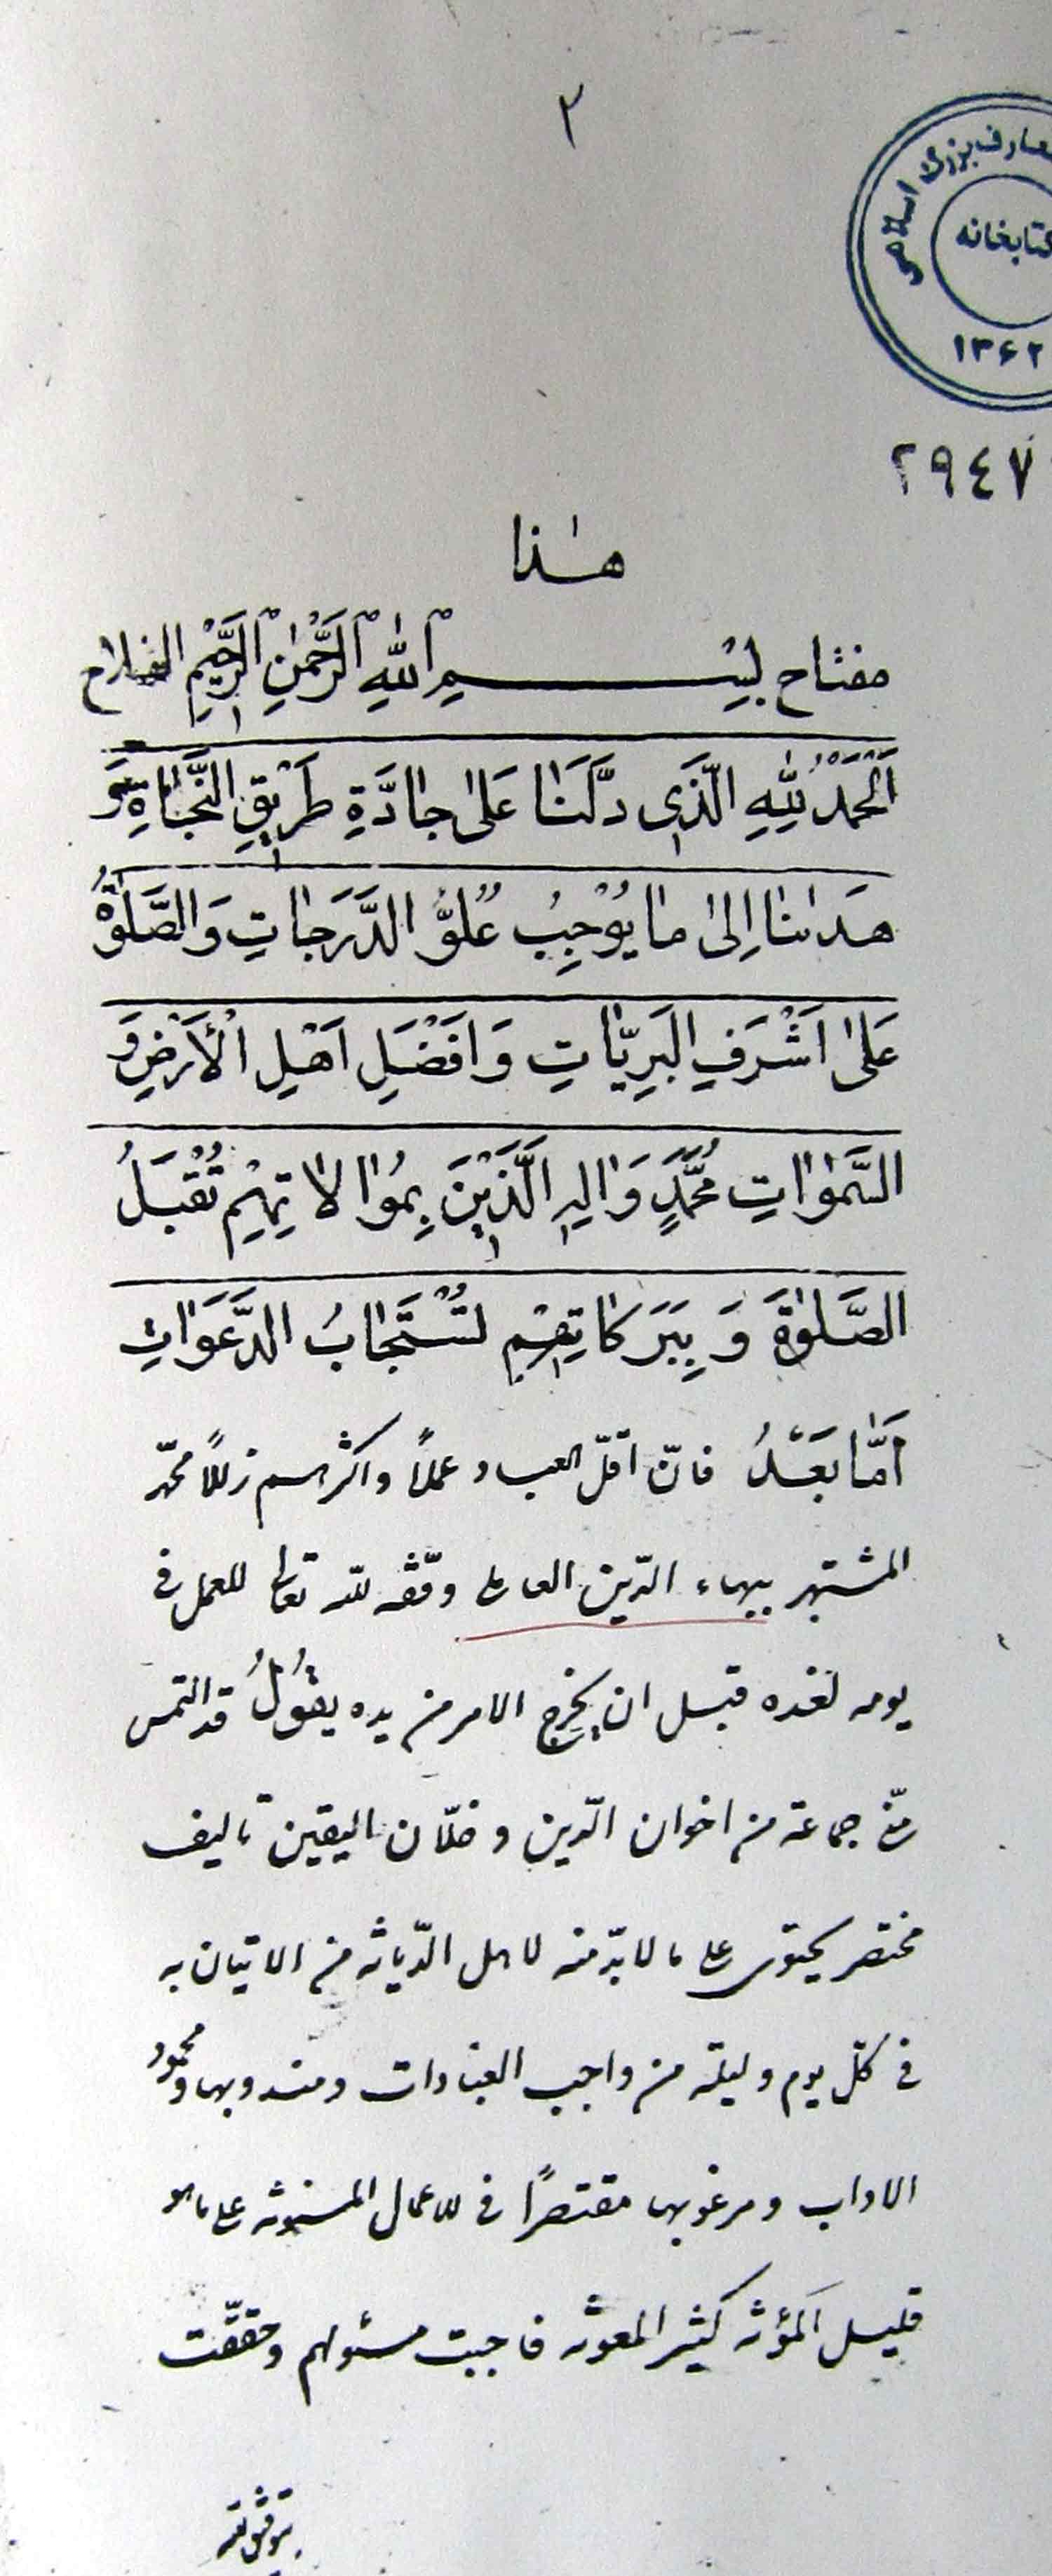 ٢
معارف بزرگ اسلامی
کتابخانه
۱۳۶۲
٢٩٤٧
هٰذا
مفتاح بِسْمِ اللّٰهِ الرَّحْمٰنِ الرَّحیْمِ الفلاح
اَلْحَمْدُ لِلّٰهِ الَّذَی دَلَّنَا عَلیٰ جٰادَّةِ طَرَیْقِ النَّجٰاةِ وَ
هَدٰىنٰا اِلیٰ مٰا یُوْجِبُ عُلُوَّ الدَّرَجٰاتِ وَالصَّلٰوةُ
عَلیٰ اَشْرَفِ البَرِیّٰاتِ وَ اَفَضَلِ اَهْلِ الْأَرَضِ وَ
السَّمٰوٰاتِ مُحَمَّدٍ وَ اٰلِهِ الَّذَیْنَ بِمُوٰالاٰتِهِمْ تُقْبَلُ
الصَّلٰوةَ وَ بِبَرَکٰاتِهِمْ لتُسْتَجٰابُ الدَّعَوَاتِ
اَمَّا بَعَدُ فانّ اقلّ العباد عملاً واکثرهم زللاً محمّد
المشتهر ببهاء الدّین العاملی وفّقه للّه تعالی للعمل فی
یومه لغده قبل ان یخرج الامر من یده یقُوْلُ قد التمس
منّی جماعة من اخوان الدّین و خلّان الیقین تالیف
مختصر یحتوی علی ما لا بدّ منه لاهل الدّیانة من الاتیان به
فی کلّ یوم و لیلة من واجب العبادات و مندوبها و محمود
الاداب و مرغوبها مقتصرًا فی للاعمال المسنونة علی ما هو
قلیل المؤنة کثیر المعونة فاجبت مسئولهم و حققت